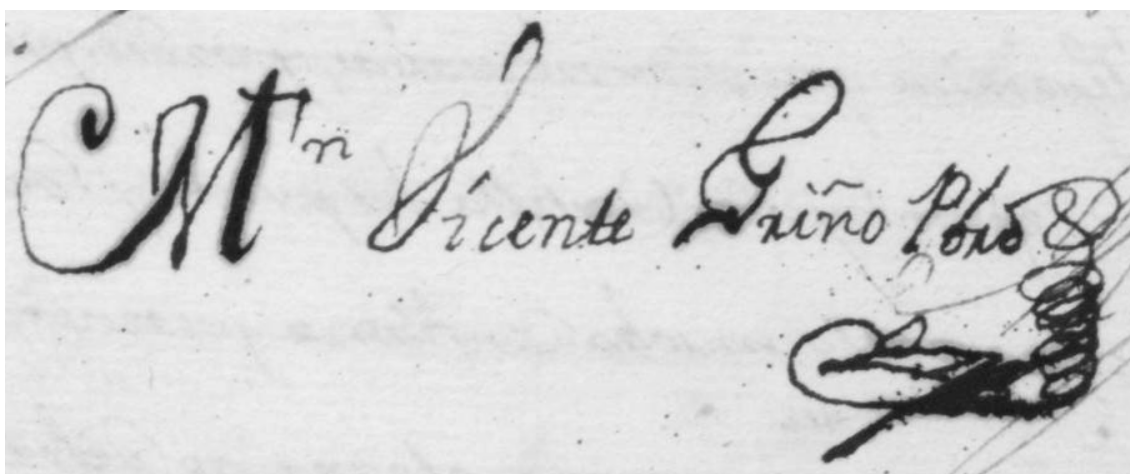 Mn Vicente Griño Pbro